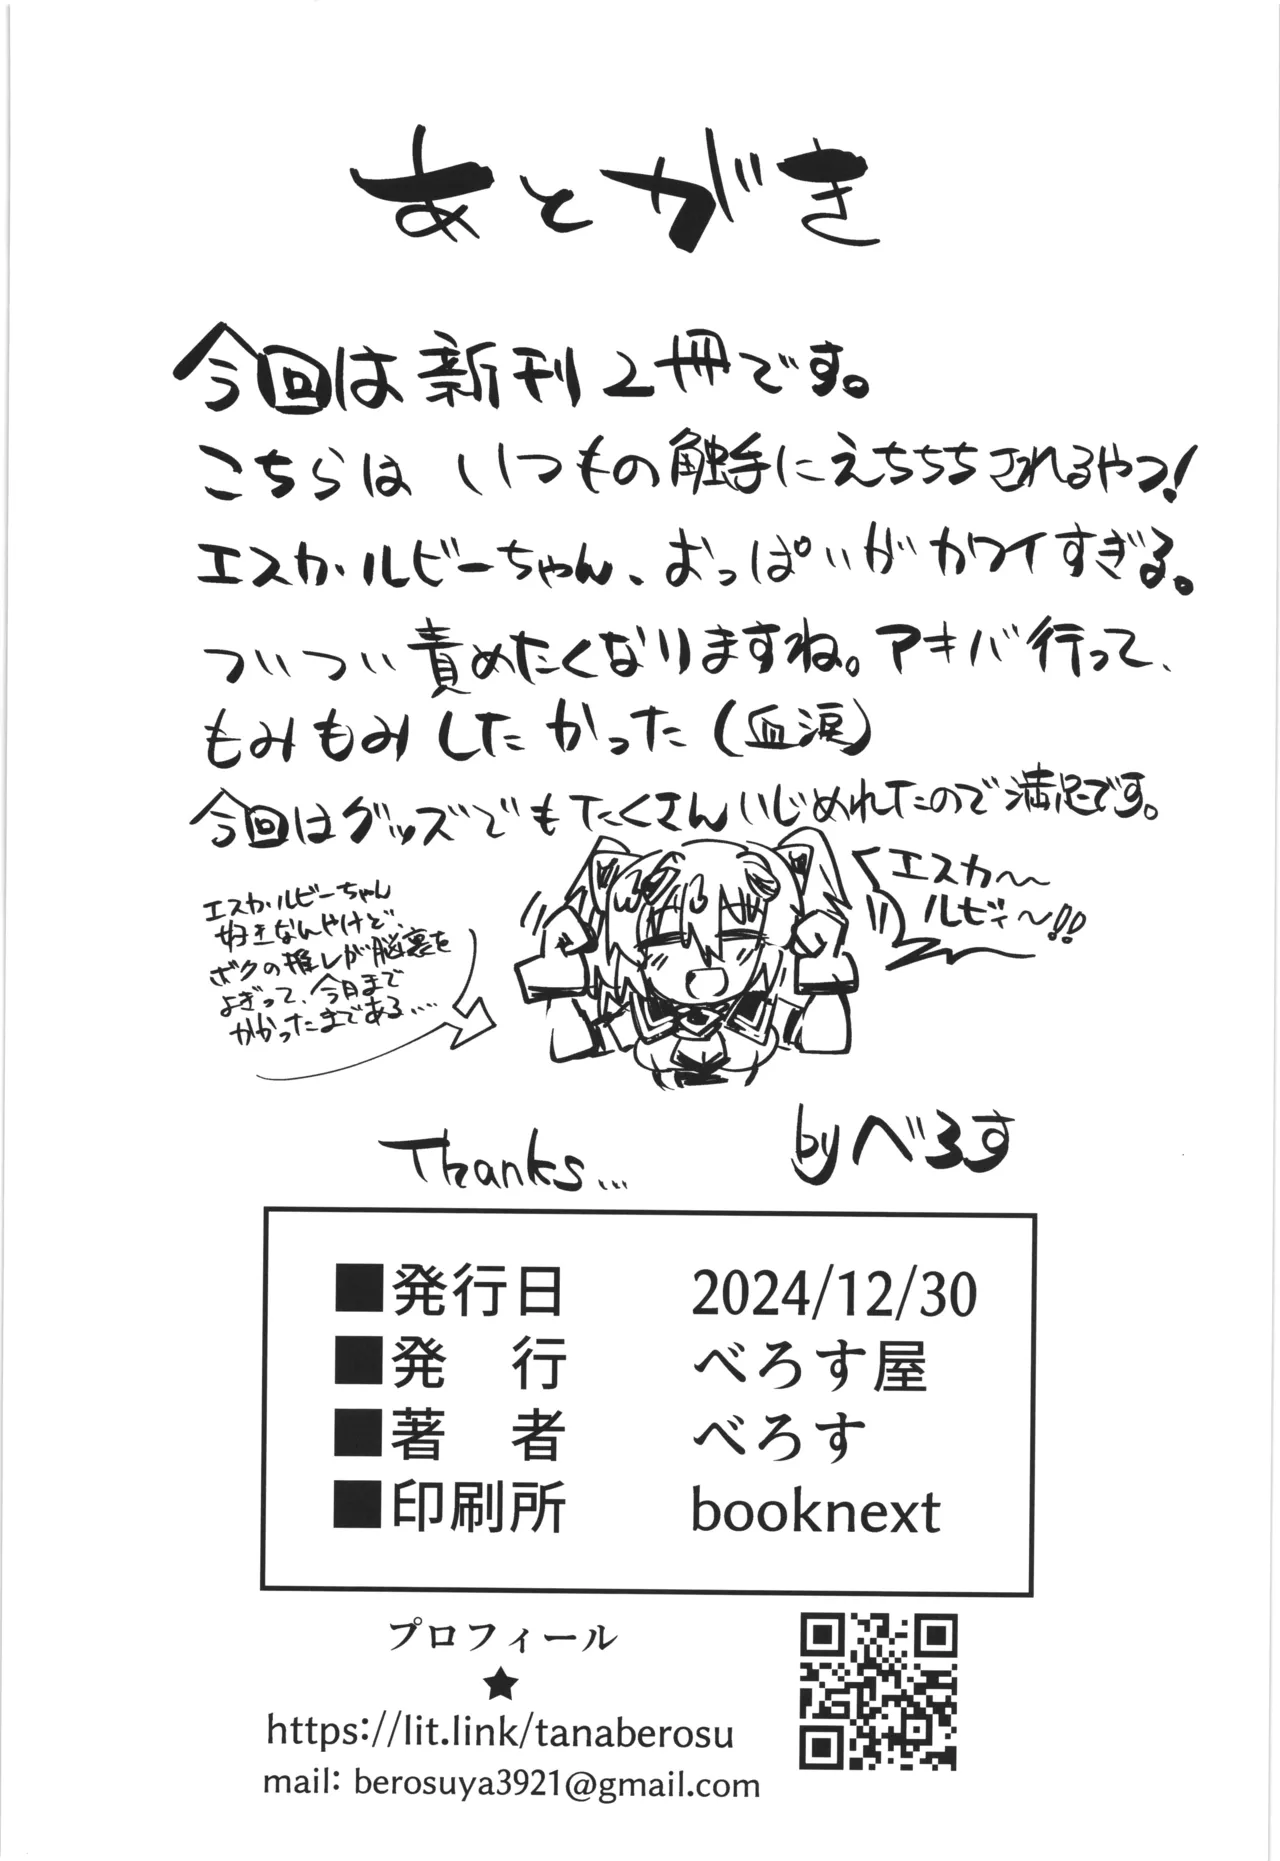 あとがき
今回は新刊2冊です。
こちらは いつもの触手にえちちちされるやつ!
エスカ・ルビーちゃん、おっぱいがカワイすぎる。
ついつい責めたくなりますね。アキバ行って、
もみもみしたかった(血涙)
今回はグッズでもたくさんいじめれたので満足です。
エスカ〜〜
ルビィ〜!!
エスカ・ルビーちゃん
好きなんやけど、
ボクの推しが脳裏を
よぎって、今月まで
かかったまである....
by べろす
Thanks...
■発行日 2024/12/30
■発 行 べろす屋
■著 者 べろす
■印刷所 booknext
プロフィール
★
https://lit.link/tanaberosu
mail: berosuya3921@gmail.com